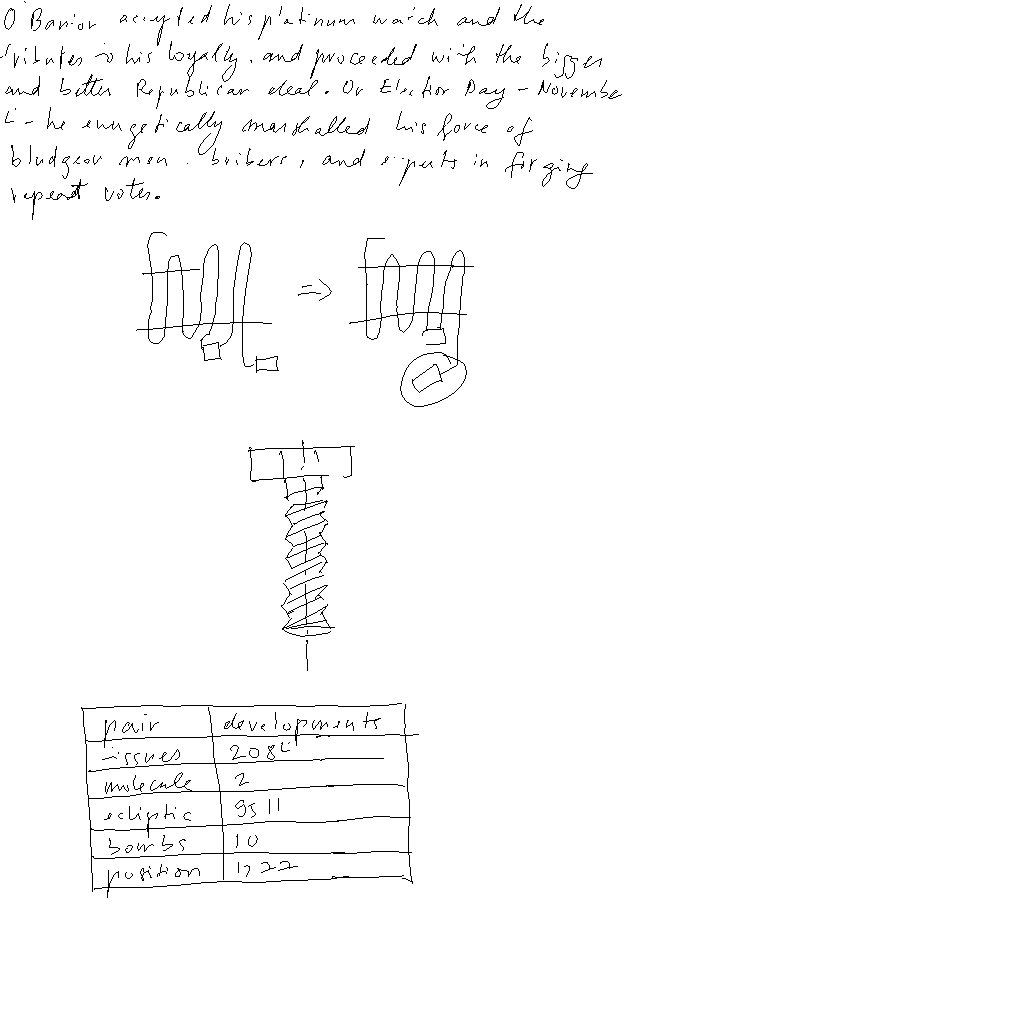 O'Banion accepted his platinum watch and the
tributes to his loyalty, and proceeded with the bigger
and better Republican deal. On Election Day - November
4 - he energetically marshalled his force of
bludgeon men, bribers, and experts in forging
repeat votes.
pair developments
issues 2084
molecule 2
ecliptic 9511
bombs 10
position 1,22